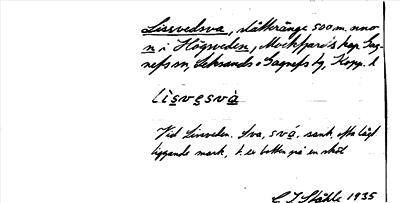 Lissvedsva, slåtteränge 500 m. nno
n i Högsveden, Mockfjärds kap. Gag-
nefs sn, Leksands o Gagnefs tg, Kopp. l
lisvesvà
Vid Lissveden. Sva, svá, sank, ofta lågt
liggande mark, t. ex. botten på en
C. I. Ståhle 1935